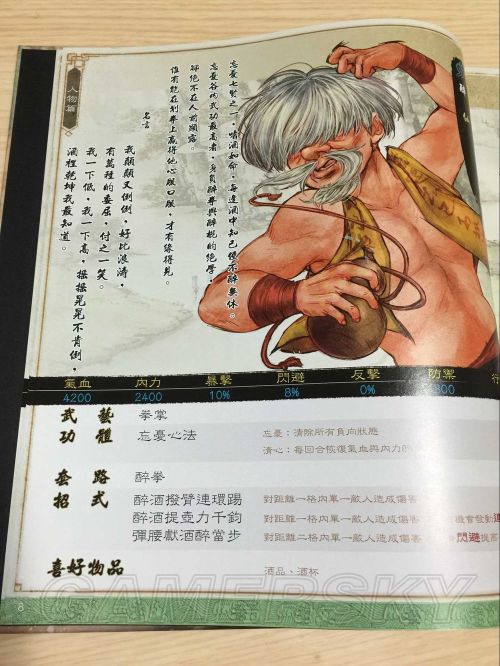 人物篇
忘憂七賢之一，嗜酒如命，每逢酒中知己便不醉無休。
忘憂谷內武功最高者，身負醉拳與醉棍的絕學，
卻絕不在人前顯露。
誰有能在划拳上贏得他心服口服，才有緣得見。
名言
我顛顛又倒倒，好比浪濤，
有萬種的委屈，付之一笑。
我一下低，我一下高，搖搖晃晃不肯倒，
酒裡乾坤我最知道。
氣血 內力 暴擊 閃避 反擊 防禦 行
4200 2400 10% 8% 0% 300
武藝 拳掌
功體 忘憂心法 忘憂：清除所有負向狀態
清心：每回合恢復氣血與內力
套路 醉拳
招式 醉酒撥臂連環踢 對距離一格內單一敵人造成傷害
醉酒提壺力千鈞 對距離一格內單一敵人造成傷害 機會發動
彈腰獻酒醉當步 對距離二格內單一敵人造成傷害 閃避提高
喜好物品 酒品、酒杯
8
GAMERSKY